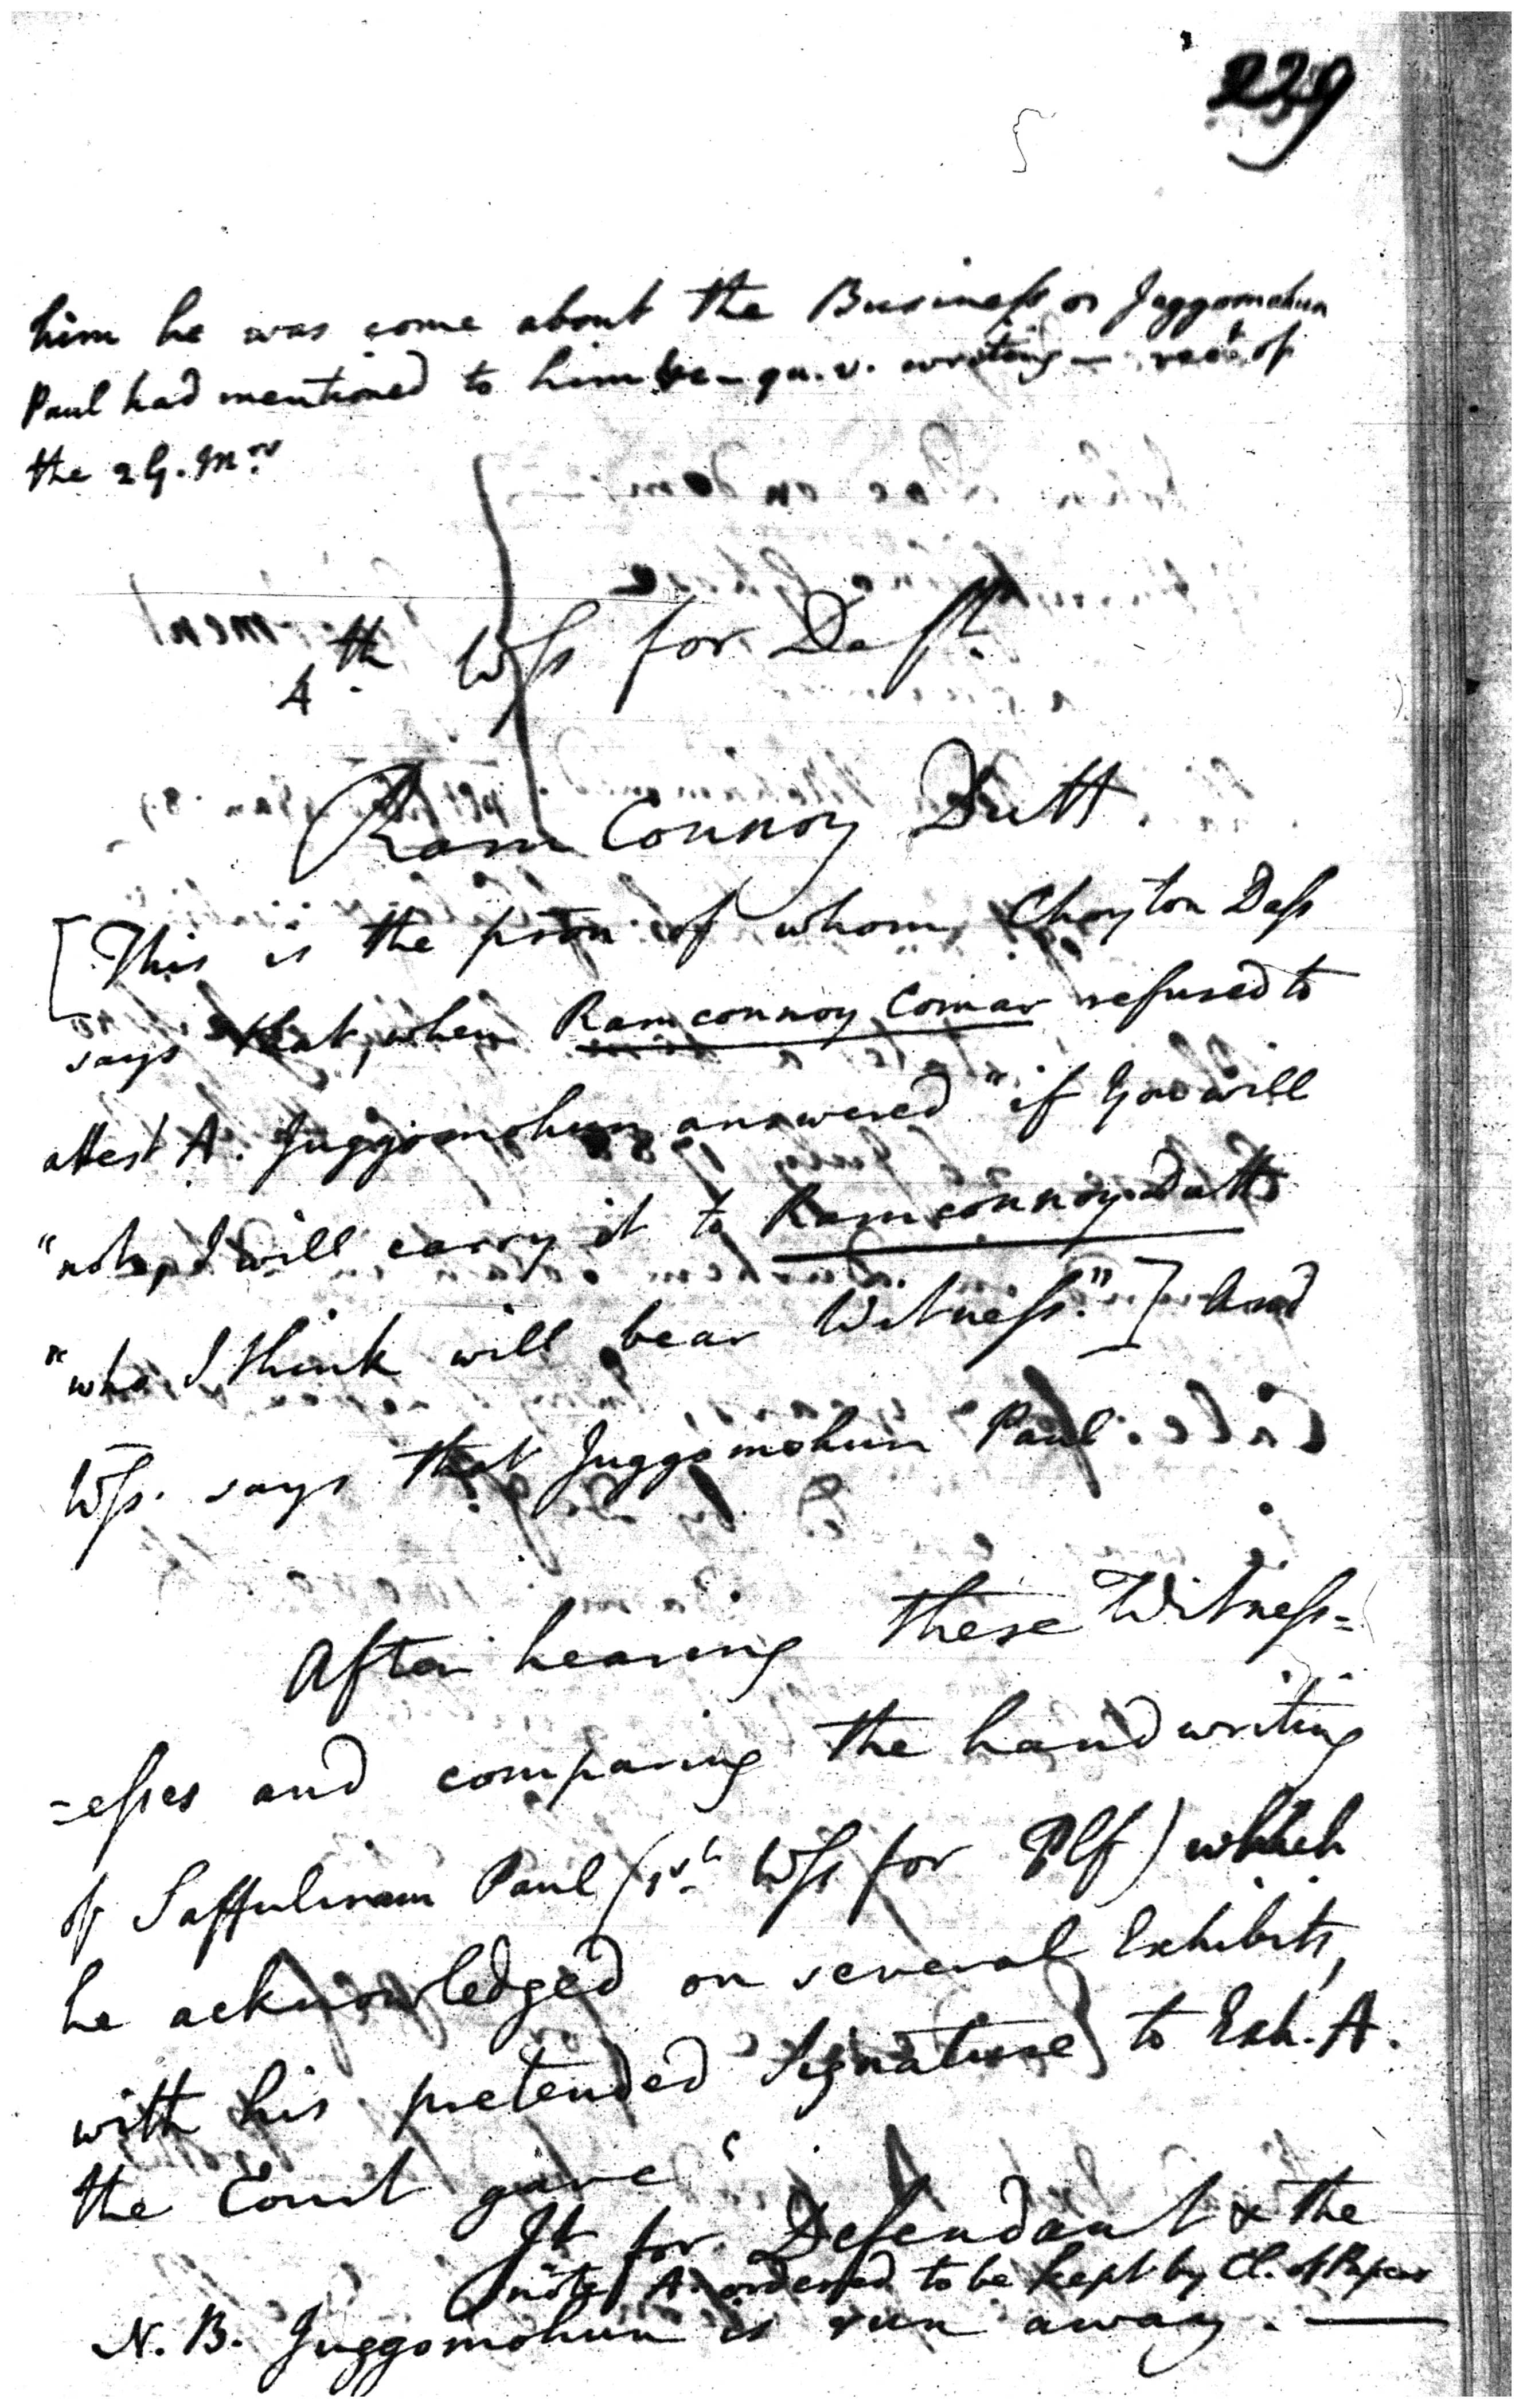 229
him he was come about the Business or Juggomohun
Paul had mentioned to him writing
the 2 G. Mrs
4th Wss for Deft
Ram Connoy Dutt.
[This is the prson of whom Choyton Dass
says that, when Ramconnoy Comar refused to
attest A. Juggomohun answered "if you will
"not, I will carry it to Ramconnoy dutt
"who I think will bear Witness."] And
Wss. says that Juggomohun Paul
After hearing these Witness=
=esses and comparing the handwriting
of Saffuliram Paul (1st Wss for Plf) which
he acknowledged on several Exhibits,
with his pretended Signature to Exh. A.
the Court gave
Jt for Defendant & the
note A. ordered to be kept by Cl. of Papers
N.B. Juggomohun is run away.